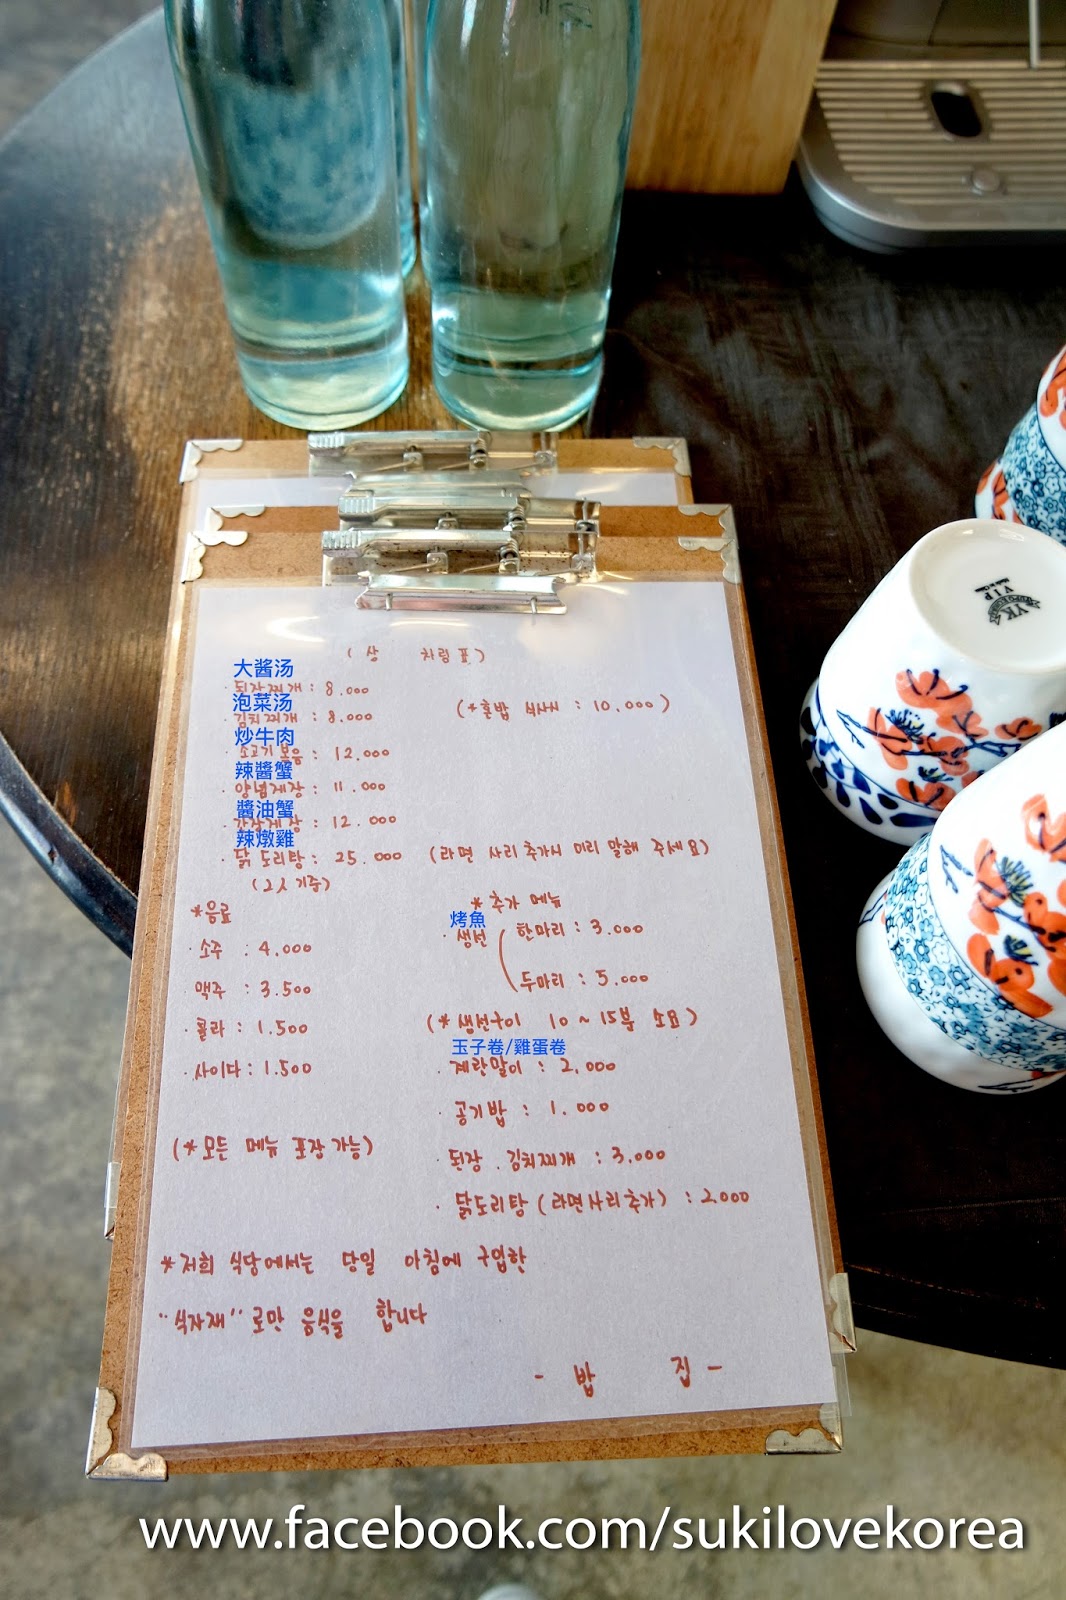 ( 상 차림표 )
大酱汤
· 된장찌개 : 8.000
泡菜汤
· 김치찌개 : 8.000
(*혼밥 식사시 : 10.000 )
炒牛肉
· 소고기 볶음 : 12.000
辣醬蟹
· 양념게장 : 11.000
醬油蟹
· 간장게장 : 12.000
辣燉雞
· 닭도리탕 : 25.000 (라면 사리 추가시 미리 말해 주세요)
(2人 기준)
*음료
· 소주 : 4.000
· 맥주 : 3.500
· 콜라 : 1.500
· 사이다 : 1.500
(*모든 메뉴 포장 가능)
* 추가 메뉴
烤魚
· 생선 ( 한마리 : 3.000
두마리 : 5.000
(* 생선구이 10 ~ 15분 소요 )
玉子卷/雞蛋卷
· 계란말이 : 2.000
· 공기밥 : 1.000
· 된장 . 김치찌개 : 3.000
· 닭도리탕 (라면사리추가) : 2.000
*저희 식당에서는 당일 아침에 구입한
"식자재" 로만 음식을 합니다
- 밥 집 -
YK
V.I.P
www.facebook.com/sukilovekorea